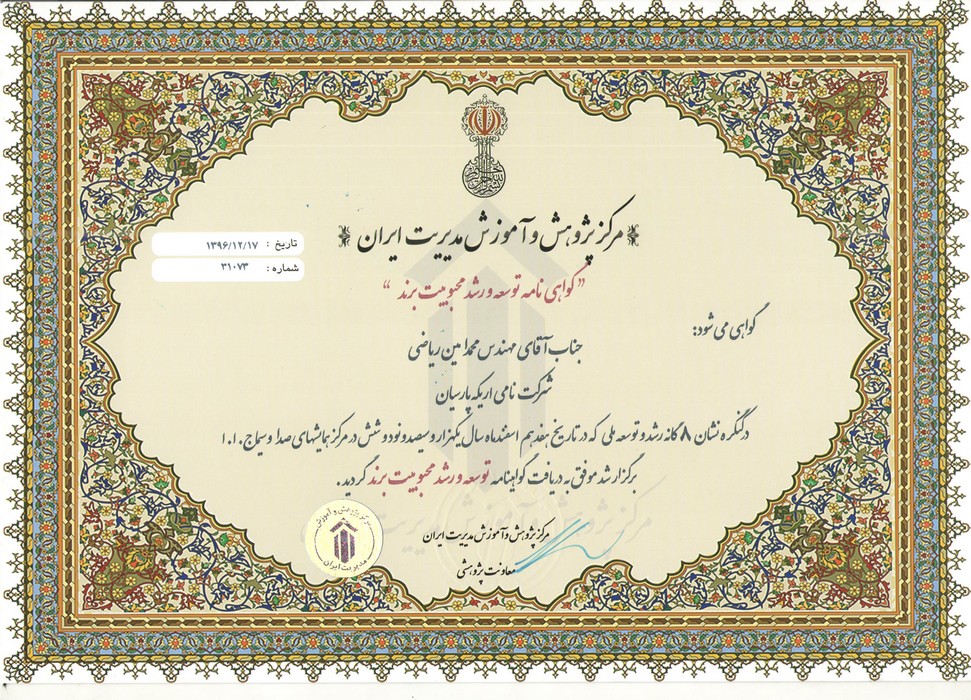 مرکز پژوهش و آموزش مدیریت ایران
تاریخ : ۱۳۹۶/۱۲/۱۷
شماره : ۳۱۰۷۳
"گواهی نامه توسعه و رشد محبوبیت برند"
گواهی می شود:
جناب آقای مهندس محمد امین ریاضی
شرکت نامی اریکه پارسیان
در کنگره نشان ۸ گانه رشد و توسعه ملی که در تاریخ هفدهم اسفند ماه سال یکهزار و سیصد و نود و شش در مرکز همایشهای صدا و سیما ج.ا.ا
برگزار شد موفق به دریافت گواهینامه توسعه و رشد محبوبیت برند گردید.
مرکز پژوهش و آموزش مدیریت ایران
معاونت پژوهشی
مرکز پژوهش و آموزش
مدیریت ایران
مرکز پژوهش و آموزش مدیریت ایران